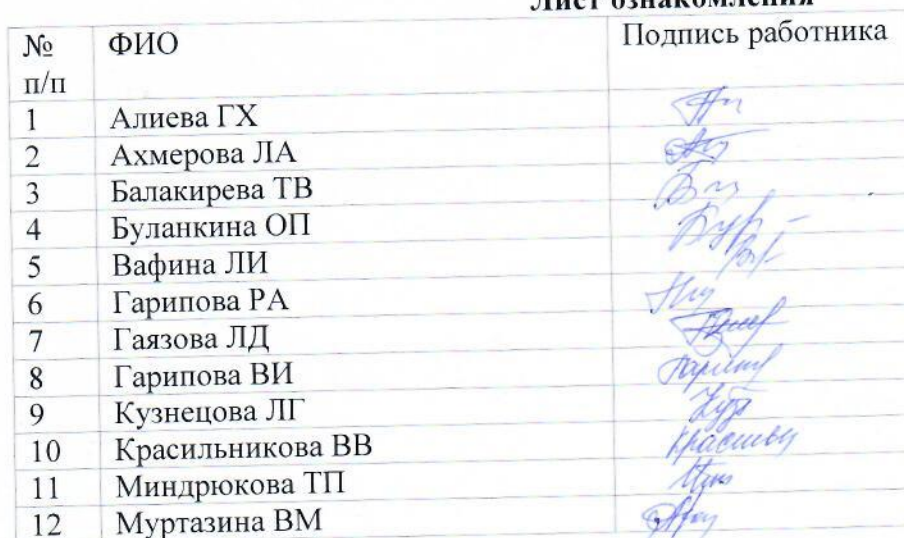 Лист ознакомления
№ п/п ФИО Подпись работника
1 Алиева ГХ
2 Ахмерова ЛА
3 Балакирева ТВ
4 Буланкина ОП
5 Вафина ЛИ
6 Гарипова РА
7 Гаязова ЛД
8 Гарипова ВИ
9 Кузнецова ЛГ
10 Красильникова ВВ
11 Миндрюкова ТП
12 Муртазина ВМ